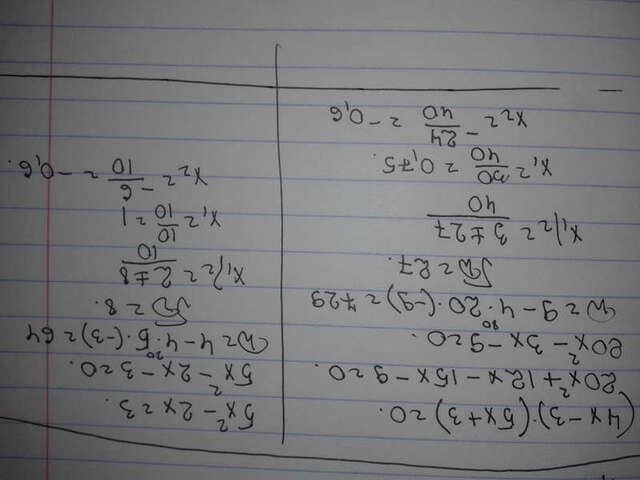 (4x-3)·(5x+3)=0.
20x²+12x-15x-9=0.
20x²-3x-9=0.
80
D=9-4·20·(-9)=729
√D=27.
x₁/₂=(3±27)/40
x₁=30/40=0,75.
x₂=-24/40=-0,6
5x²-2x=3.
5x²-2x-3=0.
20
D=4-4·5·(-3)=64
√D=8.
x₁/₂=(2±8)/10
x₁=10/10=1
x₂=-6/10=-0,6.